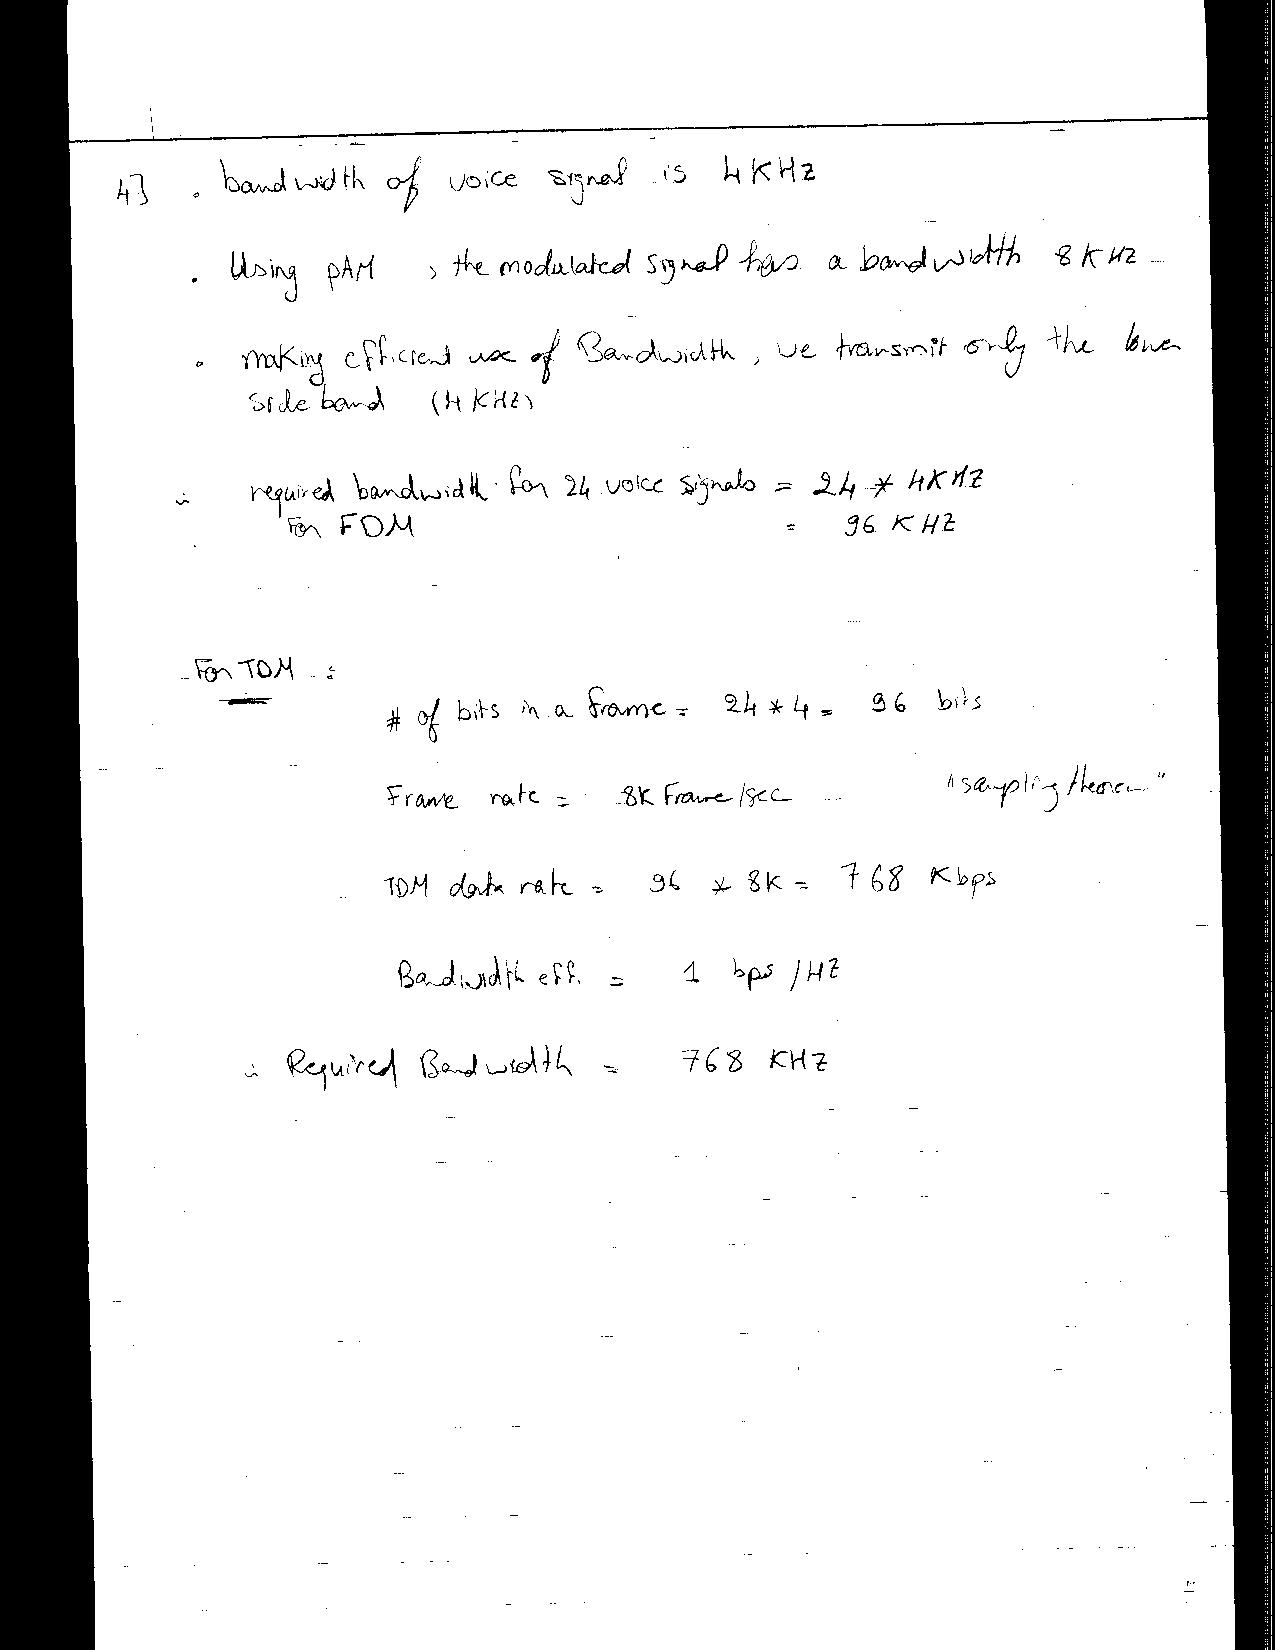 4] . bandwidth of voice signal is 4 KHZ
. Using PAM , the modulated signal has a bandwidth 8 KHZ
. making efficient use of Bandwidth, we transmit only the lower
side band (4 KHZ)
∴ required bandwidth for 24 voice signals = 24 * 4KHZ
For FDM = 96 KHZ
- For TDM :
# of bits in a frame = 24 * 4 = 96 bits
Frame rate = 8K Frame/sec "sampling theorem"
TDM data rate = 96 * 8K = 768 Kbps
Bandwidth eff. = 1 bps / HZ
∴ Required Bandwidth = 768 KHZ